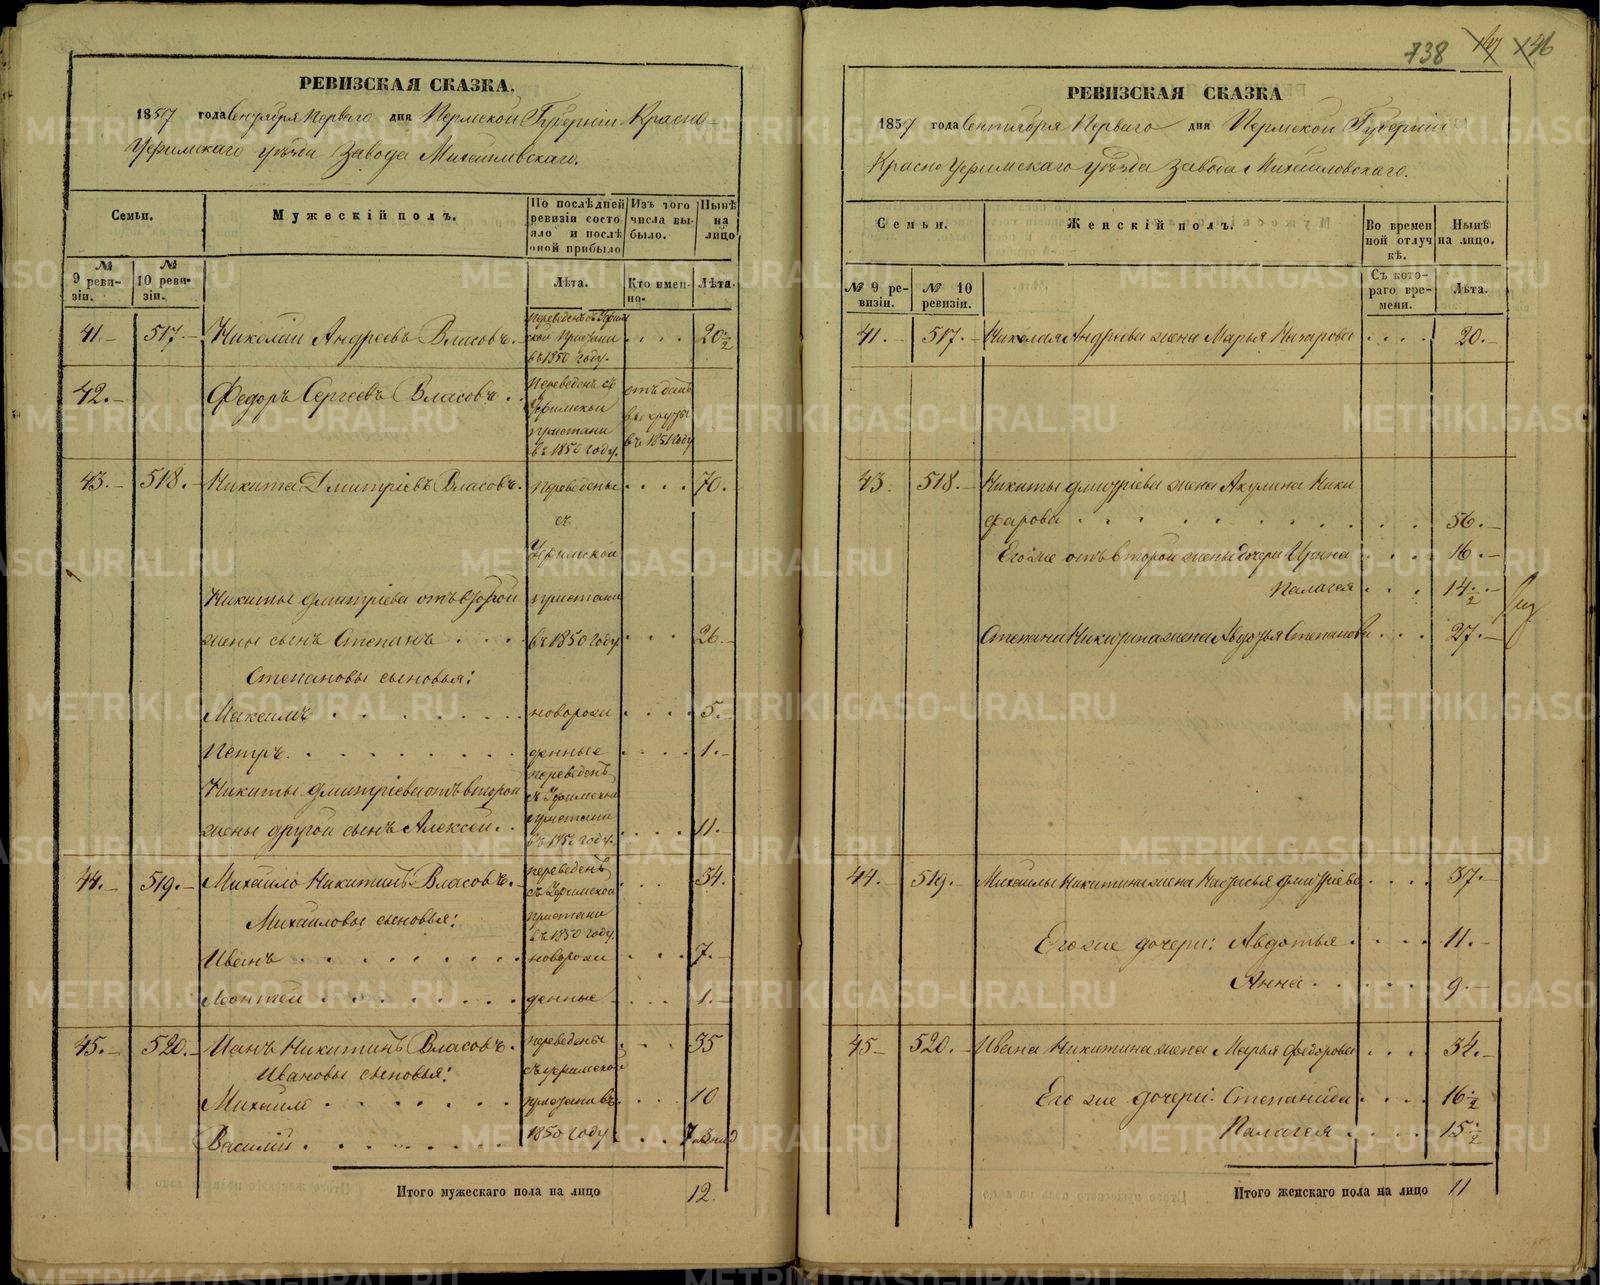 РЕВИЗСКАЯ СКАЗКА.
1857 года Сентября Перваго дня Пермской Губерніи Красно-
Уфимскаго уѣзда Завода Михайловскаго.
Семьи.
Мужескій полъ.
По послѣдней ревизіи состояло и послѣ оной прибыло
Изъ того числа выбыло.
Нынѣ на лицо
№ 9 ревизіи.
№ 10 ревизіи.
Лѣта.
Кто именно-
Лѣта.
41.- 517.- Николай Андреевъ Власовъ. 20½
въ 1850 году.
42.- Федоръ Сергеевъ Власовъ.
Переведенъ съ Уфимской пристани въ 1850 году.
отъданъ въ 1851 году
43.- 518.- Никита Дмитріевъ Власовъ. Переведены 70.-
съ
Уфимской
Никиты Дмитріева отъ второй пристани
жены сынъ Степанъ въ 1850 году 26.-
Степановы сыновья:
Максимъ новорож 5.-
Петръ. денные 1.-
Никиты Дмитріева отъ второй
жены другой сынъ Алексей. 11.-
переведенъ съ Уфимской пристани въ 1850 году.
44.- 519.- Михайло Никитинъ Власовъ. 34.
переведенъ съ Уфимской пристани въ 1850 году.
Михайловы сыновья:
Иванъ новорож 7.-
Леонтей денные 1.-
45.- 520.- Иванъ Никитинъ Власовъ. переведены 35
Ивановы сыновья: съ Уфимской
Михайло пристани въ 10
Василій 1850 году 7
Итого мужескаго пола на лицо 12.
738 146
РЕВИЗСКАЯ СКАЗКА
1857 года Сентября Перваго дня Пермской Губерніи
Красно Уфимскаго уѣзда Завода Михайловскаго.
Семьи.
Женскій полъ.
Во временной отлучкѣ.
Нынѣ на лицо.
№ 9 ревизіи.
№ 10 ревизіи.
Съ котораго времени.
Лѣта.
41.- 517.- Николая Андреева жена Марья 20.-
43. 518.- Никиты Дмитріева жена Акулина Ники
фарова 56.-
Его же отъ второй жены дочери Ирина 16.-
Палагея 14½.-
Степана Никитина жена Авдотья Степанова 27.-
44.- 519.- Михайлы Никитина жена Настасья Дмитріева 37.-
Его же дочери: Авдотья 11.-
Анна 9.-
45- 520.- Ивана Никитина жена Марья Федорова 34.-
Его же дочери: Степанида 16½
Палагея 15½
Итого женскаго пола на лицо 11
METRIKI.GASO-URAL.RU